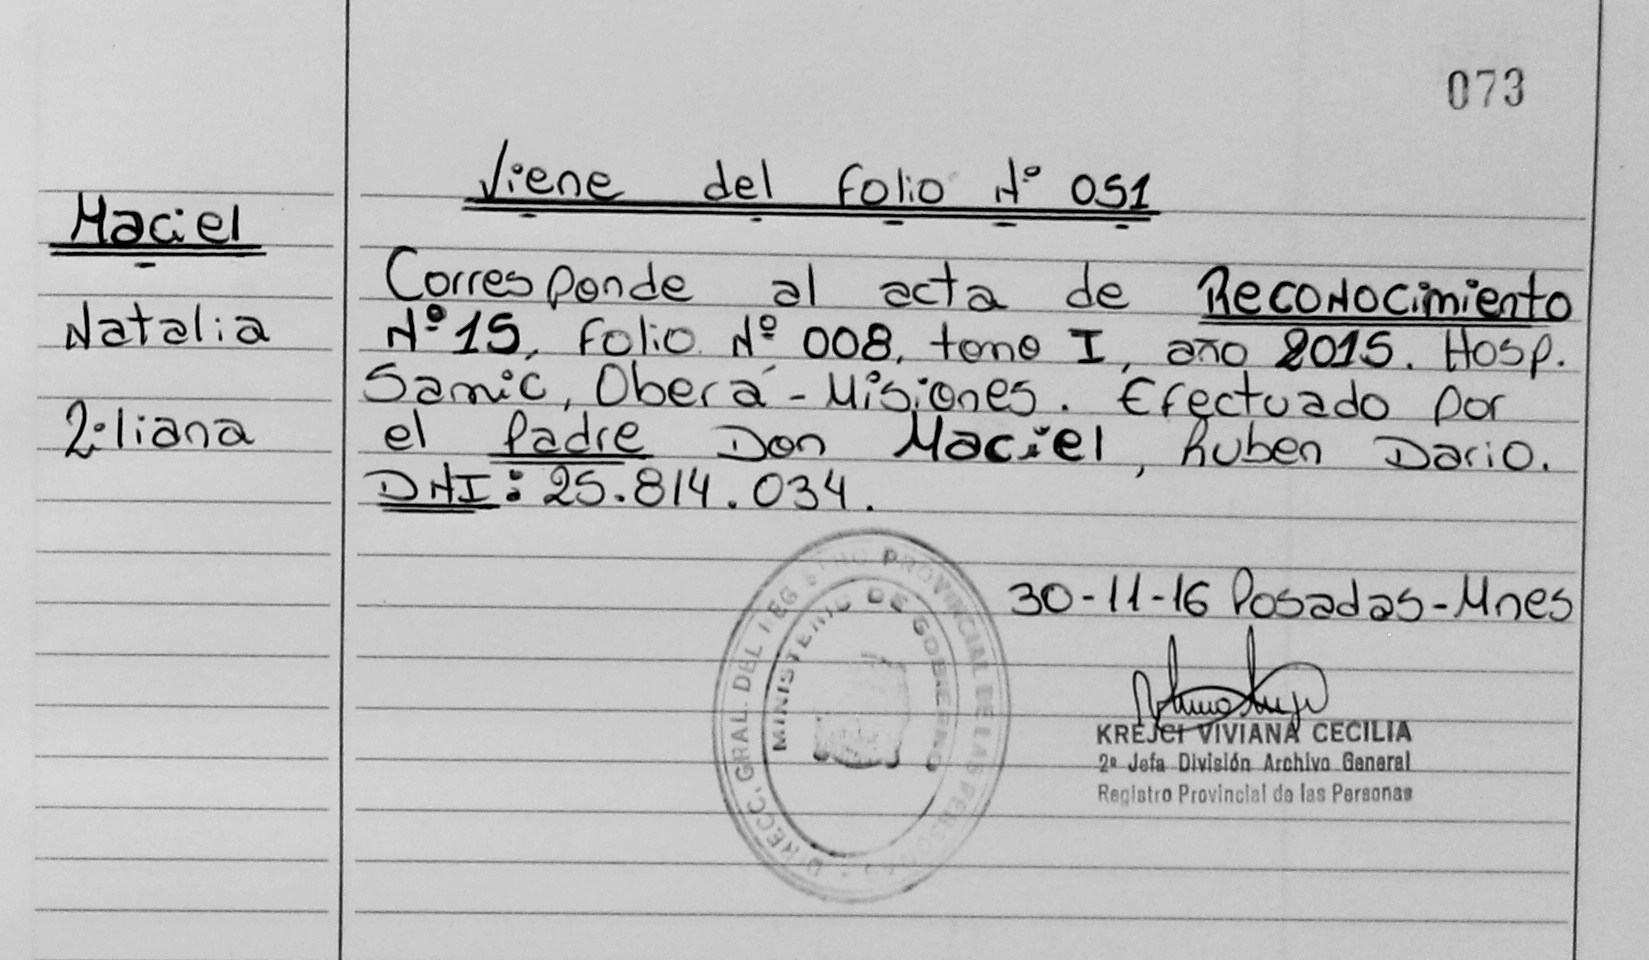 073
Viene del folio Nº 051
Maciel
Natalia
Liliana
Corresponde al acta de Reconocimiento
Nº 15, folio Nº 008, tomo I, año 2015. Hosp.
Samic, Oberá - Misiones. Efectuado por
el Padre Don Maciel, Ruben Dario.
DNI: 25.814.034.
30-11-16 Posadas-Mnes
KREJCI VIVIANA CECILIA
2ª Jefa División Archivo General
Registro Provincial de las Personas
DIRECC. GRAL. DEL REGISTRO PROVINCIAL DE LAS PERSONAS
MINISTERIO DE GOBIERNO